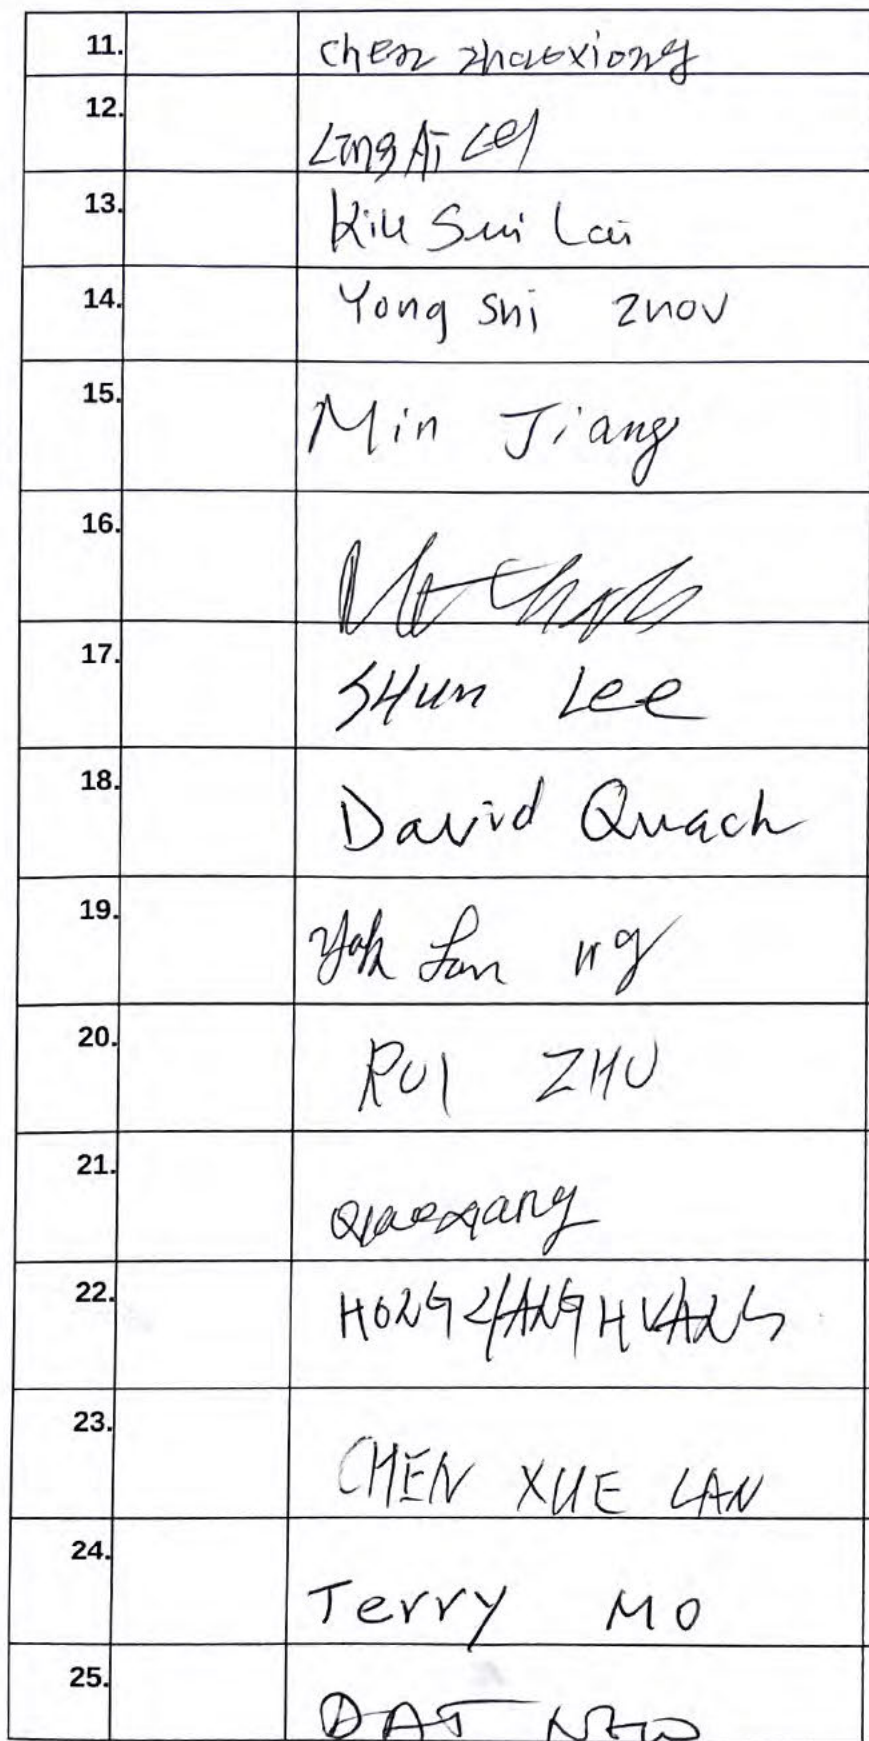 11. Chen zhaoxiong
12. Ling Ai Lei
13. Kiu Sui Lai
14. Yong Shi Zhov
15. Min Jiang
16.
17. SHun Lee
18. David Quach
19. Yok Lan ng
20. RUI ZHU
21.
22. HONG LIANG HUANG
23. CHEN XUE LAN
24. Terry Mo
25. DAT